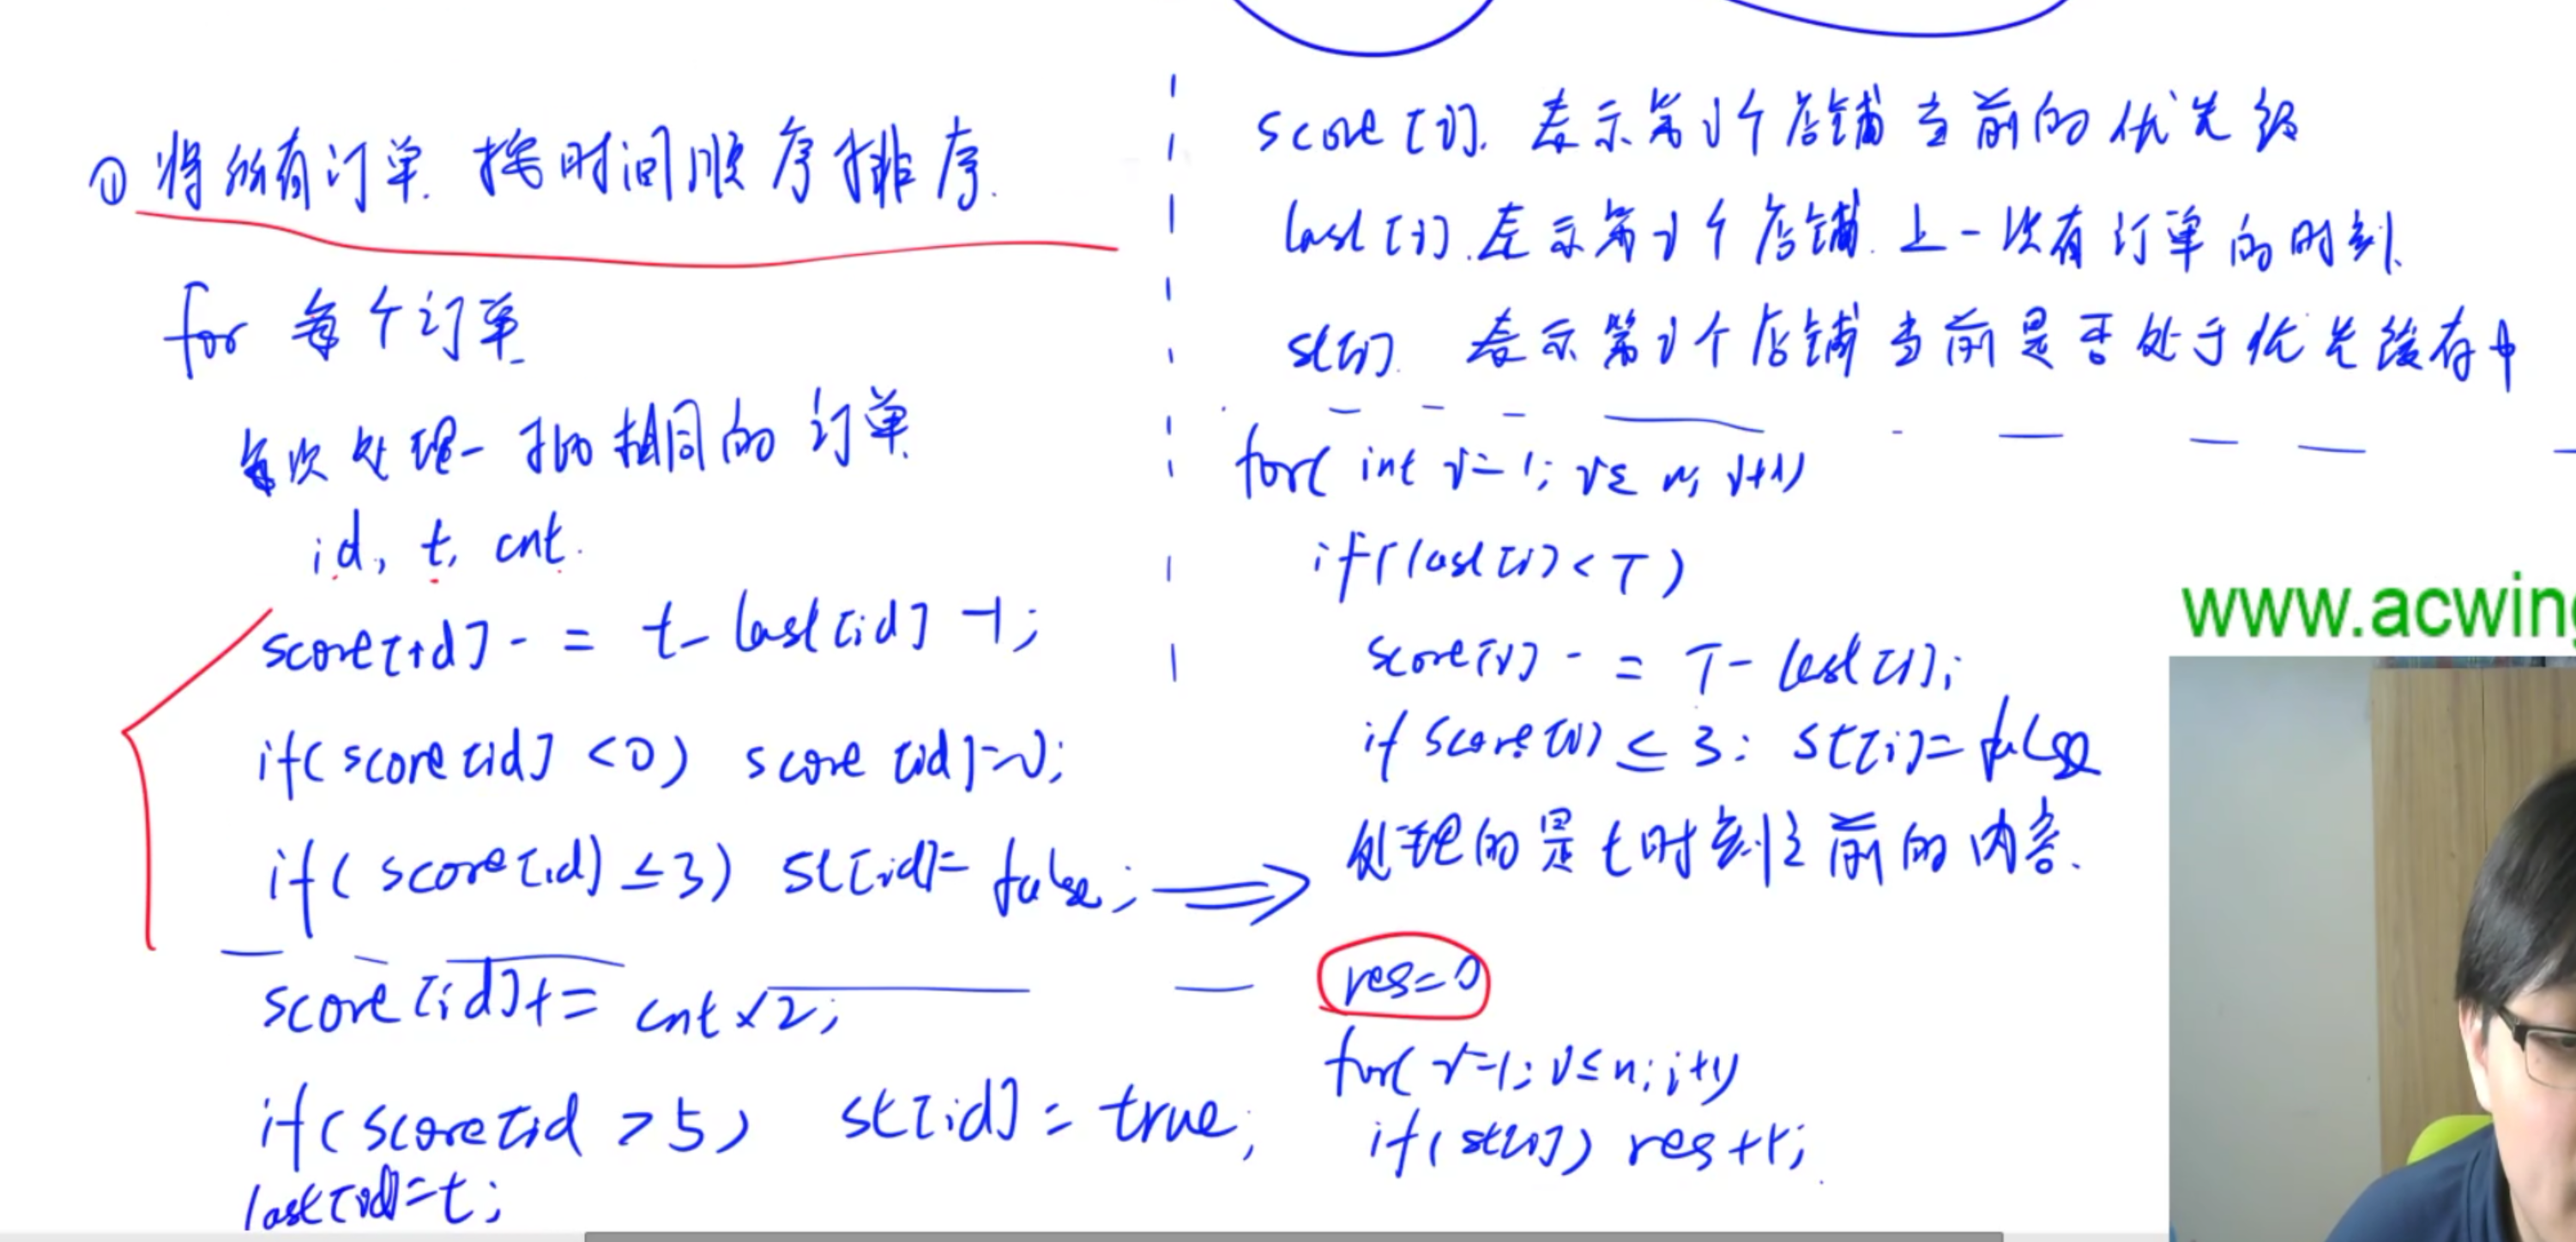 ① 将所有订单 按时间顺序排序.
for 每个订单
每次处理一批相同的订单
id, t, cnt.
score[id] -= t - last[id] -1;
if( score[id] <0) score[id]=0;
if( score[id] ≤3) st[id]= false;
score[id]+= cnt×2;
if( score[id >5) st[id] = true;
last[id]=t;
score[i]. 表示第i个店铺当前的优先级
last[i].表示第i个店铺.上一次有订单的时刻.
st[i]. 表示第i个店铺当前是否处于优先缓存中
for( int i=1; i≤ n; i++)
if( last[i] < T )
score[i] -= T- last[i];
if score[i] ≤ 3: st[i]= false
处理的是t时刻之前的内容.
res=0
for( i=1; i≤n; i++)
if( st[i]) res++;
www.acwing